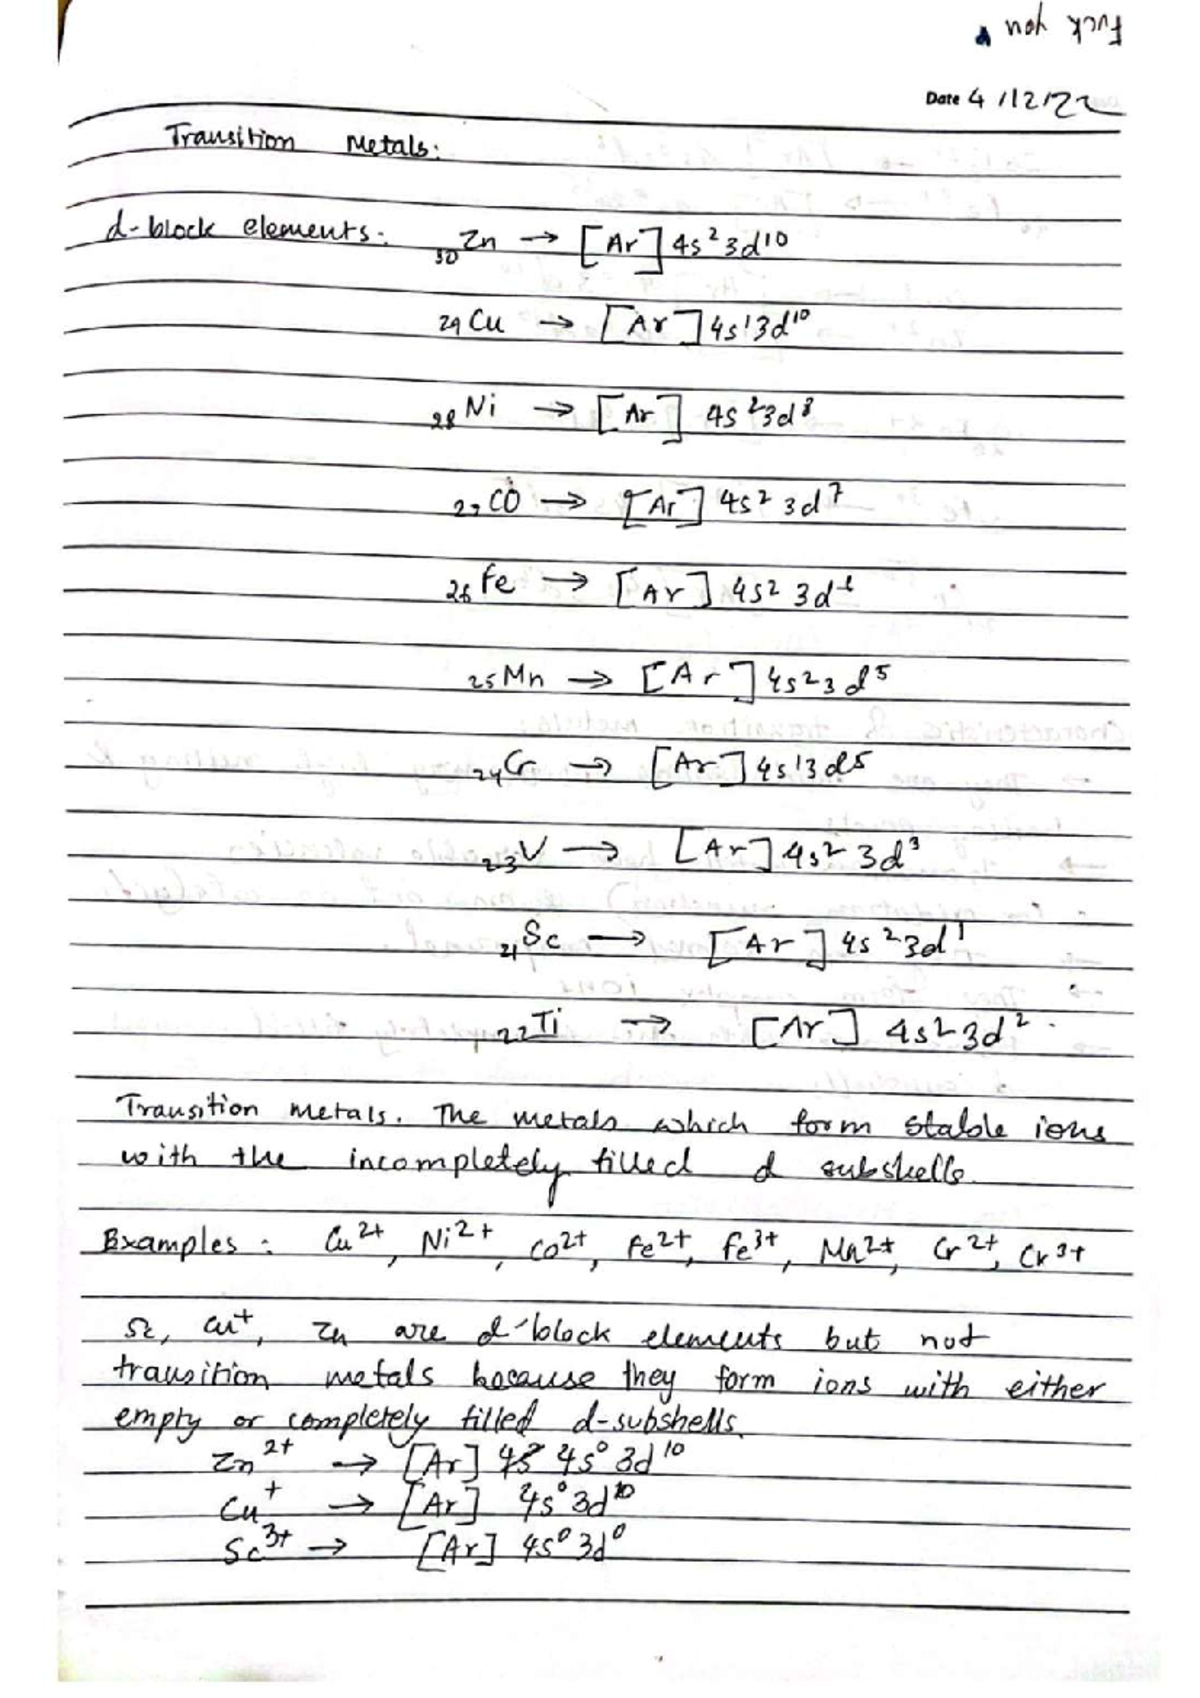 Fuck you
Date 4/12/22
Transition Metals:
d-block elements: ₃₀Zn → [Ar] 4s² 3d¹⁰
₂₉Cu → [Ar] 4s¹ 3d¹⁰
₂₈Ni → [Ar] 4s² 3d⁸
₂₇CO → [Ar] 4s² 3d⁷
₂₆Fe → [Ar] 4s² 3d⁶
₂₅Mn → [Ar] 4s² 3d⁵
₂₄Cr → [Ar] 4s¹ 3d5
₂₃V → [Ar] 4s² 3d³
₂₁Sc → [Ar] 4s² 3d¹
₂₂Ti → [Ar] 4s² 3d².
Transition metals. The metals which form stable ions
with the incompletely filled d subshells.
Examples: Cu²⁺, Ni²⁺, Co²⁺, Fe²⁺, Fe³⁺, Mn²⁺, Cr²⁺, Cr³⁺
Sc, Cu⁺, Zn are d-block elements but not
transition metals because they form ions with either
empty or completely filled d-subshells.
Zn²⁺ → [Ar] 4s⁰ 3d¹⁰
Cu⁺ → [Ar] 4s⁰ 3d¹⁰
Sc³⁺ → [Ar] 4s⁰ 3d⁰